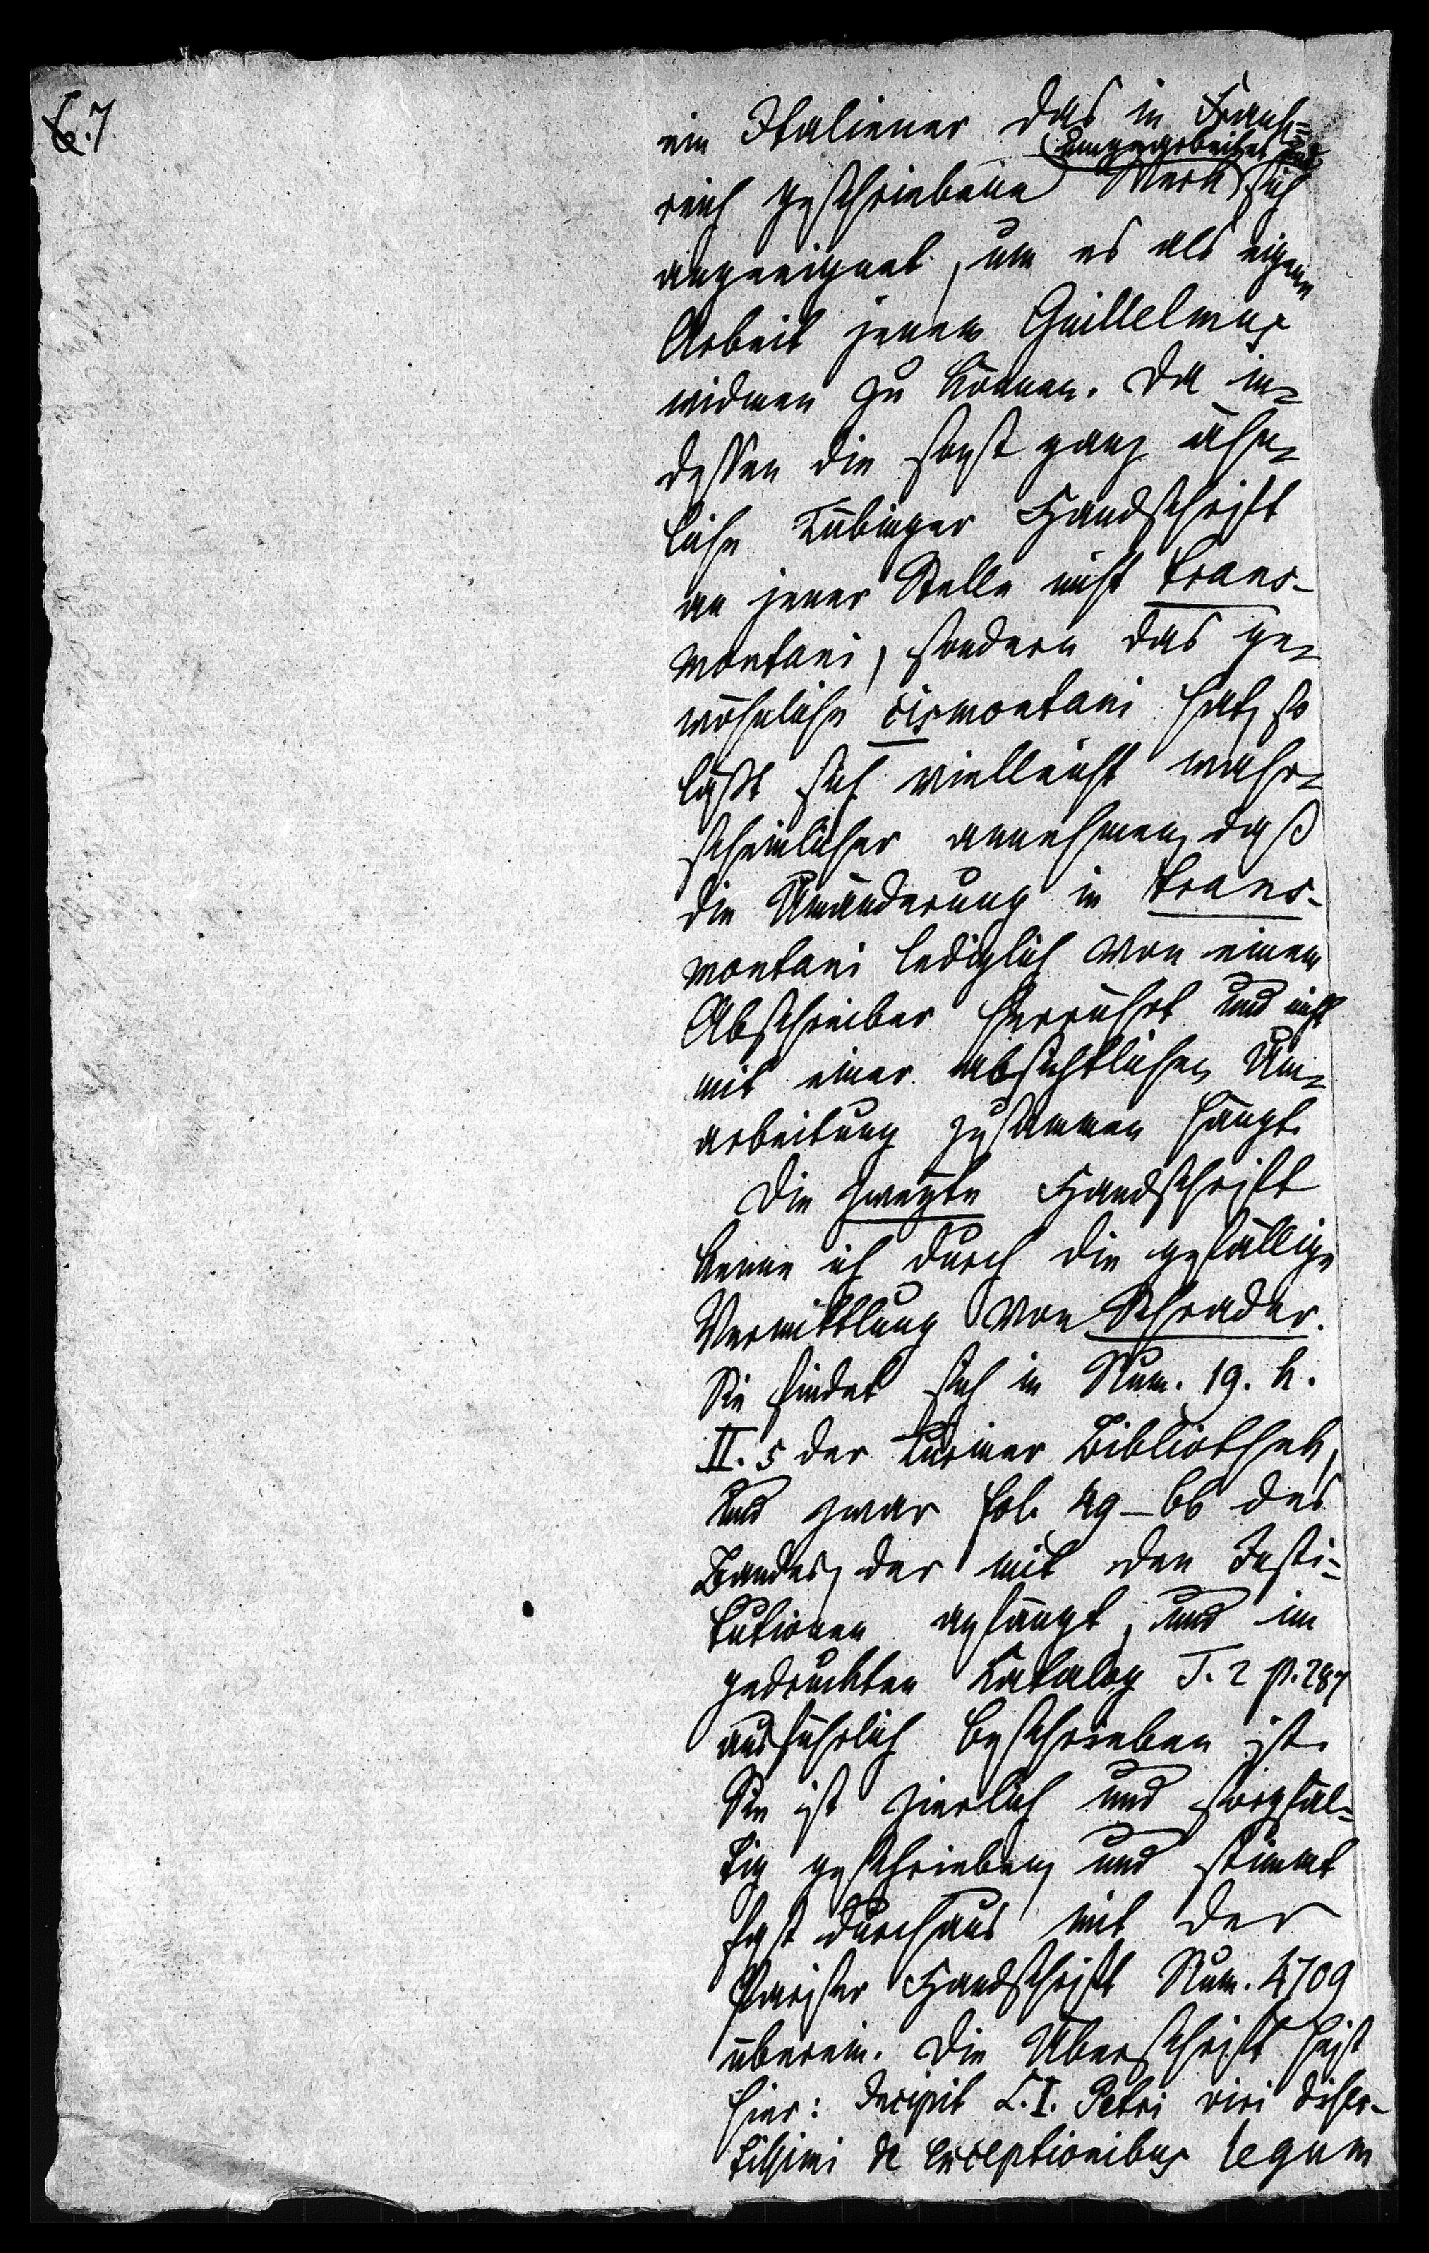 6.7
ein Italiener das in Frank=
(umgearbeitet und
reich geschriebene Werk sich
angeeignet, um es als eigene
Arbeit jenem Guillelmus
widmen zu können. Da in=
dessen die sonst ganz ähn=
liche Tübinger Handschrift
an jener Stelle nicht trans-
montani, sondern das ge=
wöhnliche cismontani hat, so
läßt sich vielleicht wahr=
scheinlicher annehmen, daß
die Umänderung in trans-
montani lediglich von einem
Abschreiber herrührt und nicht
mit einer absichtlichen Um=
arbeitung zusammen hängt.
Die zweyte Handschrift
kenne ich durch die gefällige
Vermittlung von Schrader.
Sie findet sich in Num. 19. h.
II. 5 der Turiner Bibliothek,
und zwar fol. 49-66 des
Bandes, der mit den Insti=
tutionen anfängt, und im
gedruckten Katalog T. 2 p. 287
ausführlich beschrieben ist.
Sie ist zierlich und sorgfäl=
tig geschrieben, und stimmt
fast durchaus mit der
Pariser Handschrift Num. 4709
überein. Die Überschrift heist
hier: Incipit L. I. Petri viri diser-
tissimi de exceptionibus legum